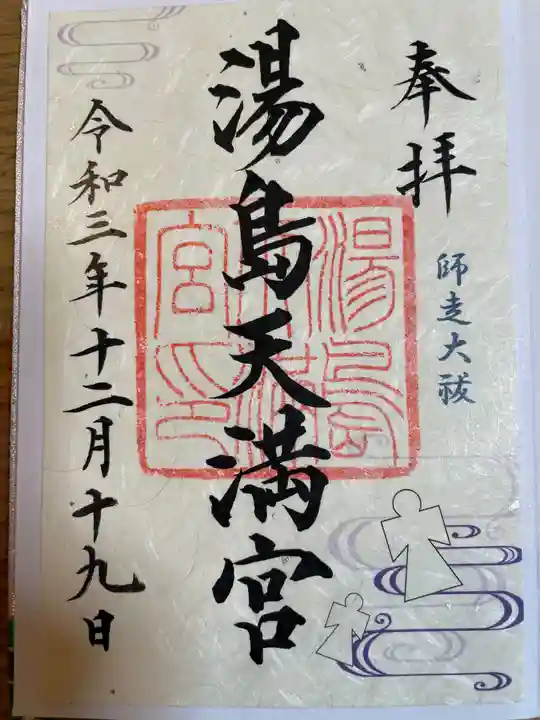 奉拝
師走大祓
湯島天満宮
湯島天満宮印
令和三年十二月十九日